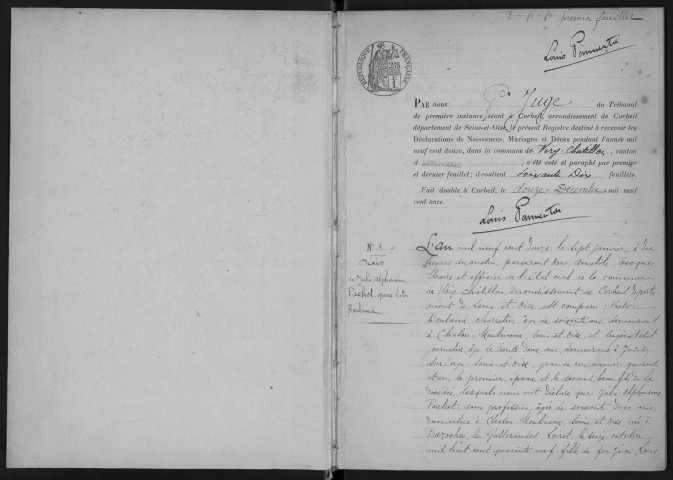 premier feuillet
Louis Parmentier
RÉPUBLIQUE FRANÇAISE
PAR nous Juge du Tribunal
de première instance, séant à Corbeil, arrondissement de Corbeil
département de Seine-et-Oise, le présent Registre destiné à recevoir les
Déclarations de Naissances, Mariages et Décès pendant l'année mil
neuf cent douze, dans la commune de Viry-Chatillon, canton
d , a été coté et paraphé par premier
et dernier feuillet; il contient Soixante Dix feuillets.
Fait double à Corbeil, le Douze Décembre mil neuf
cent onze.
Louis Parmentier
N° 1
Décès
de Julie alphonsine
Pichot épouse Victor
Rouland
L'an mil neuf cent douze, le sept janvier, à dix
heures du matin, pardevant nous
Maire et officier de l'état civil de la commune
de Viry-Châtillon, arrondissement de Corbeil départe
ment de Seine et Oise, est comparu Victor
Rouland charretier, âgé de soixante ans, demeurant
à Chalon-Moulineux, Seine et Oise, et Eugène
journalier, âgé de trente deux ans, demeurant à Juvisy-
sur-Orge, Seine-et-Oise,
le premier, époux et le second, beau fils de la
décédée, lesquels nous ont déclaré que Julie alphonsine
Pichot, sans profession, âgée de soixante deux ans,
domiciliée à Chalon-Moulineux, Seine et Oise, née à
Bazoches les Gallerandes, Loiret, le seize octobre
mil huit cent quarante neuf, fille de feu Jean Louis